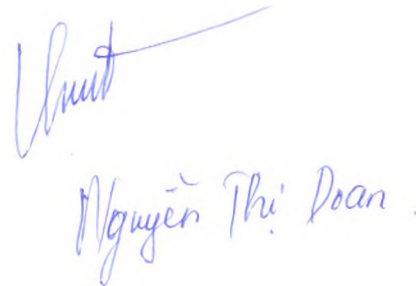 Nguyễn Thị Doan